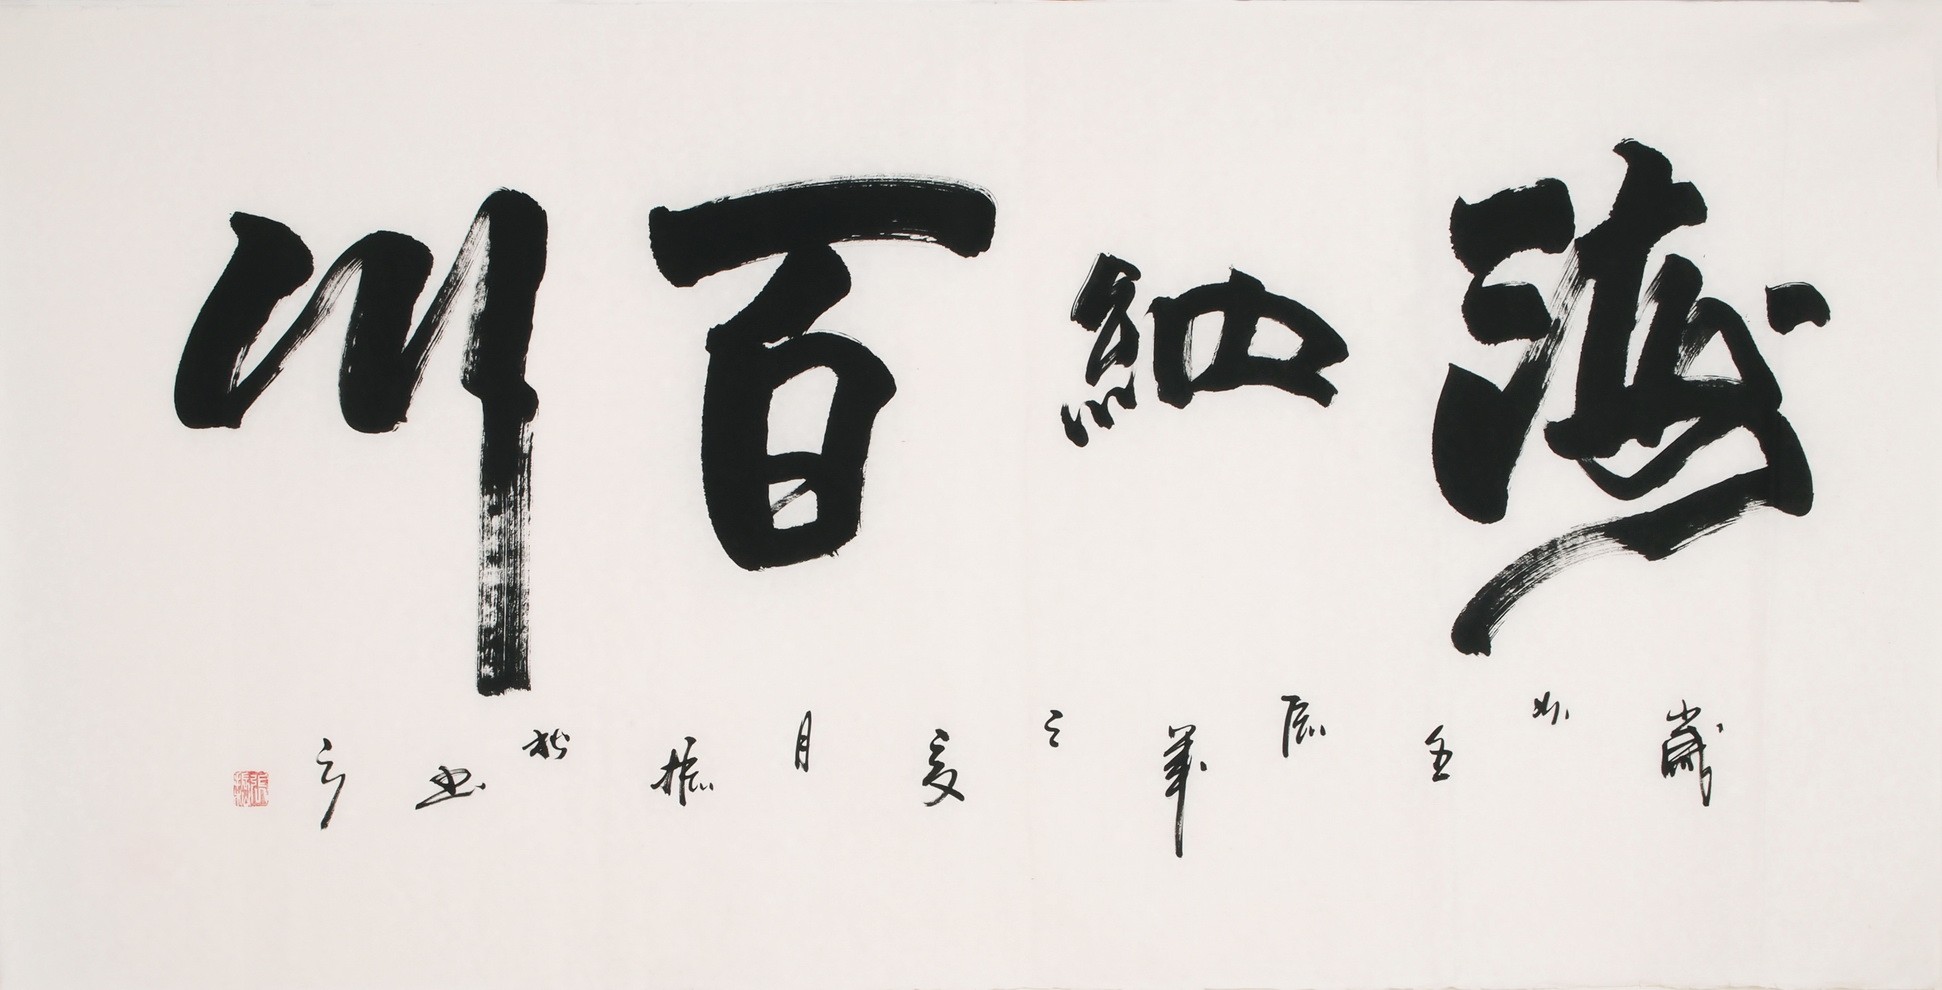 海納百川
歲次壬辰年之夏月振於書